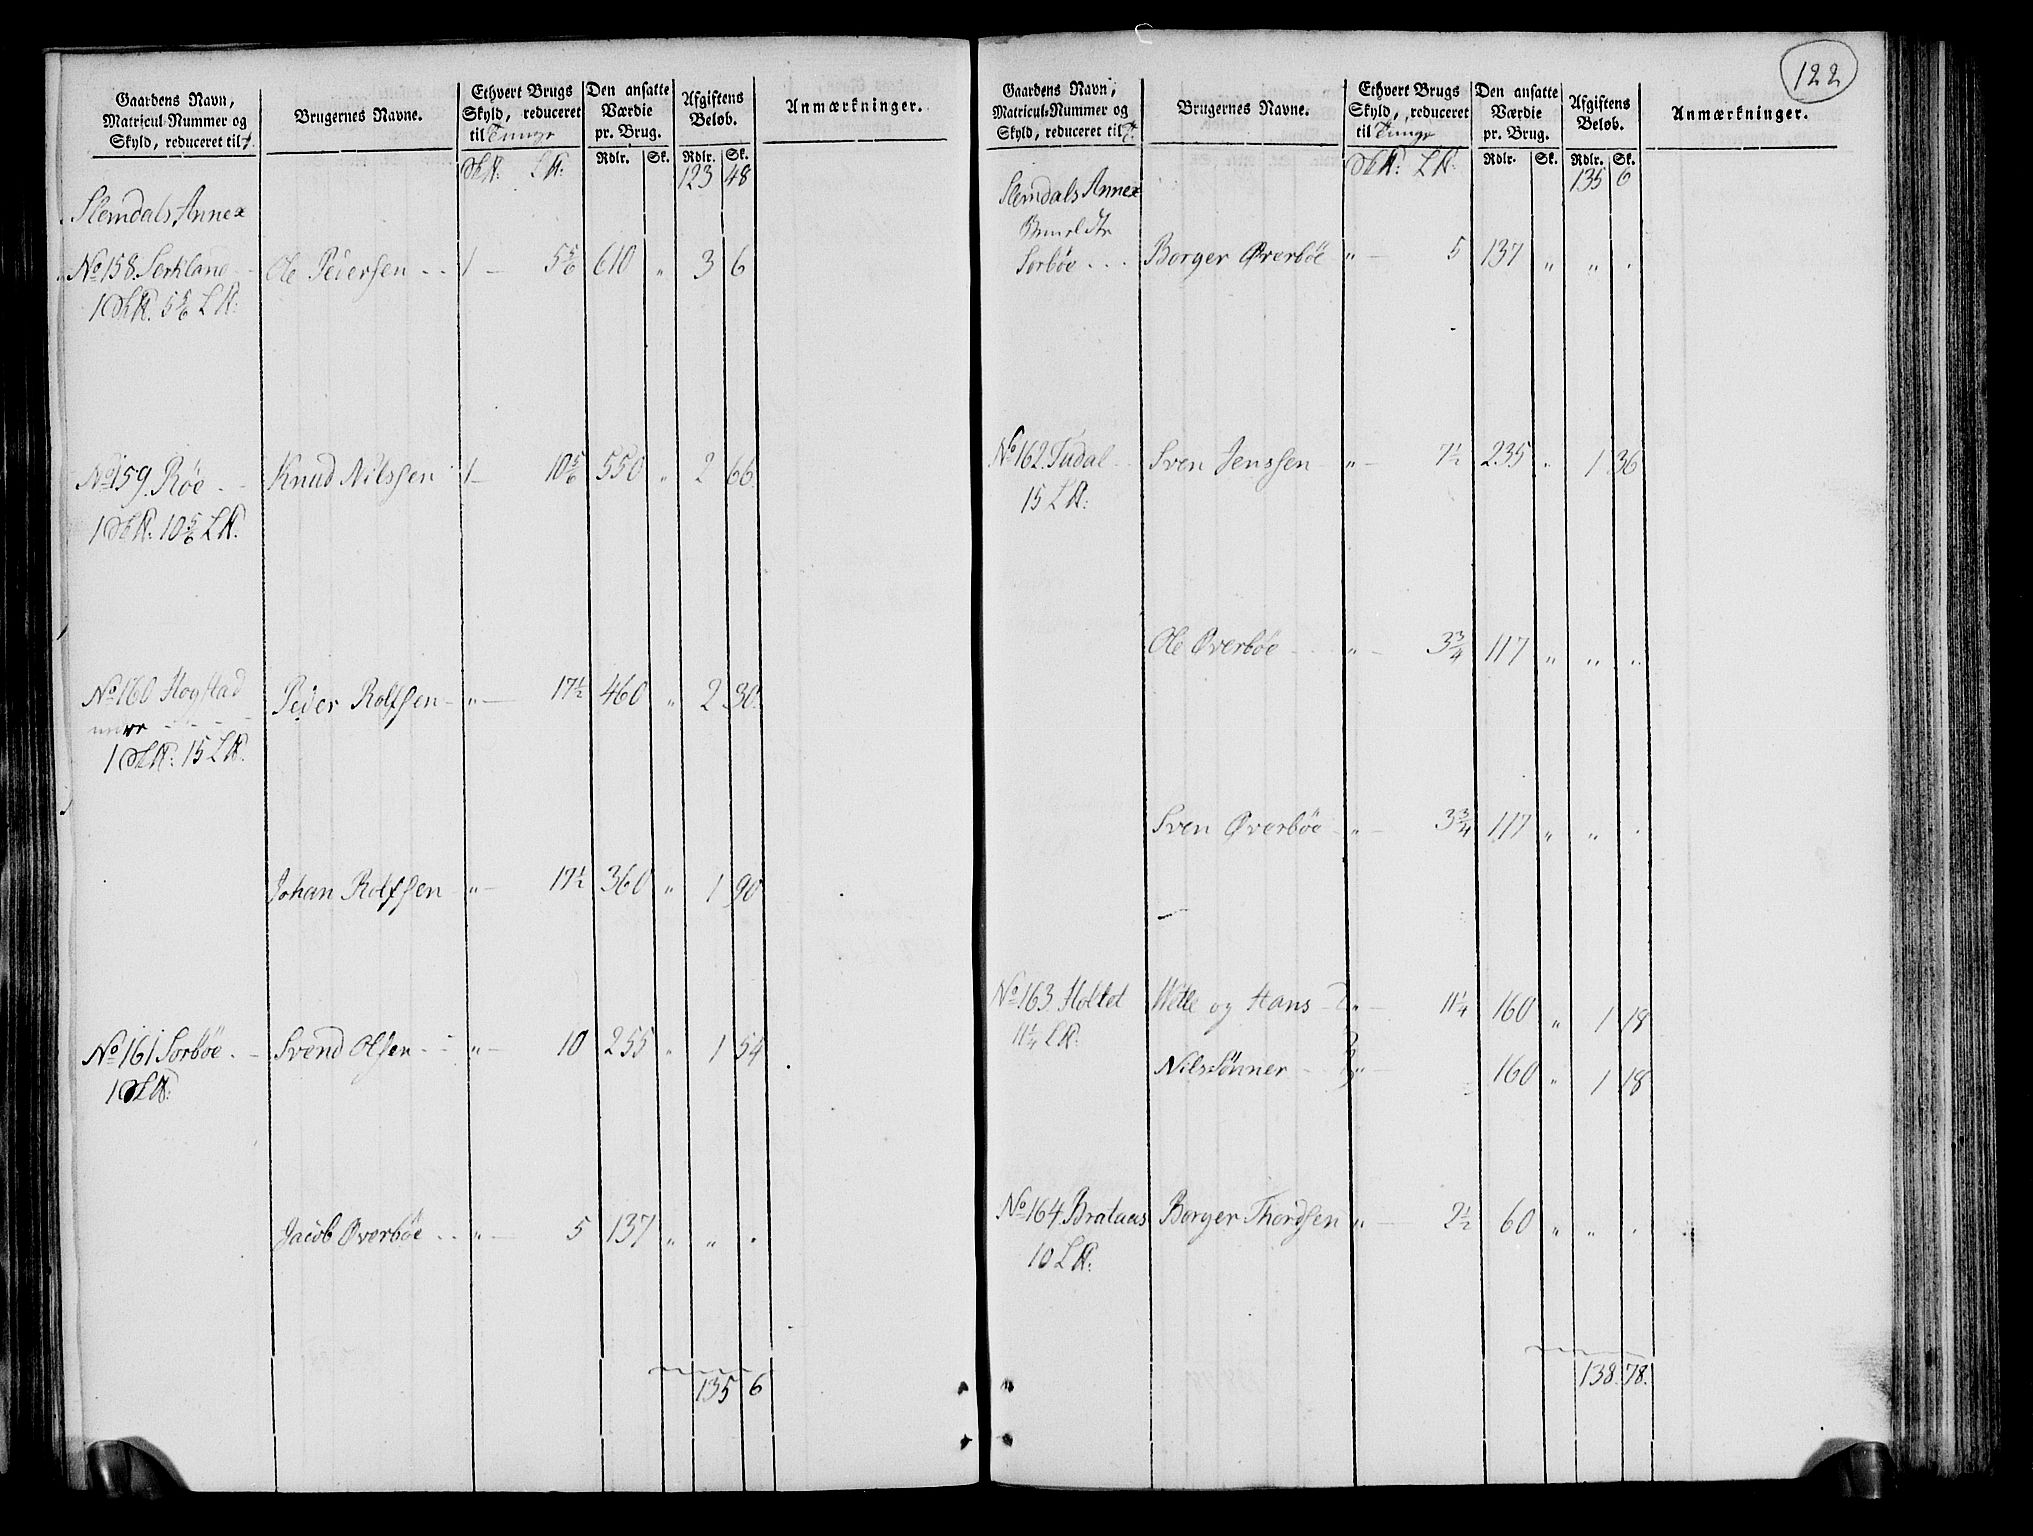 122
Gaardens Navn,
Matricul-Nummer og
Skyld, reduceret til
Brugernes Navne.
Ethvert Brugs
Skyld, reduceret
til Tunge
Den ansatte
Værdie
pr. Brug.
Afgiftens
Beløb.
Anmærkninger.
Rdlr. Sk. Rdlr. Sk.
123 48
Slemdals Annex
No 158. Serkland Ole Pedersen - - 1 - 5 5/6 610 " 3 6
1 5 5/6
No 159. Røe - Knud Nilssen 1 - 10 5/6 550 " 2 66
1 10 5/6
No 160 Hogstad Peder Rolfsen - " - 17 1/2 460 " 2 30
1 15
Johan Rolfsen " - 17 1/2 360 " 1 90
No 161 Sorbøe - Svend Olsen - " - 10 255 " 1 54
1
Jacob Øverbøe - - " - 5 137 " " .
135 6
Gaardens Navn,
Matricul-Nummer og
Skyld, reduceret til
Brugernes Navne.
Ethvert Brugs
Skyld, reduceret
til Tunge
Den ansatte
Værdie
pr. Brug.
Afgiftens
Beløb.
Anmærkninger.
Rdlr. Sk. Rdlr. Sk.
135 6
Slemdals Annex
Sorbøe - - - Borger Øverbøe " - 5 137 " " .
No 162 Tudal - Sven Jenssen " - 7 1/2 235 " 1 36
15
Ole Øverbøe - - " - 3 3/4 117 " " "
Sven Øverbøe - " - 3 3/4 117 " " .
No 163 Holtet Wetle og Hans - " - 11 1/4 160 " 1 18
11 1/4
Nils Sønner - - " - 160 " 1 18
No 164 Brataas Borger Thordsen " - 2 1/2 60 " " .
10
138. 78.